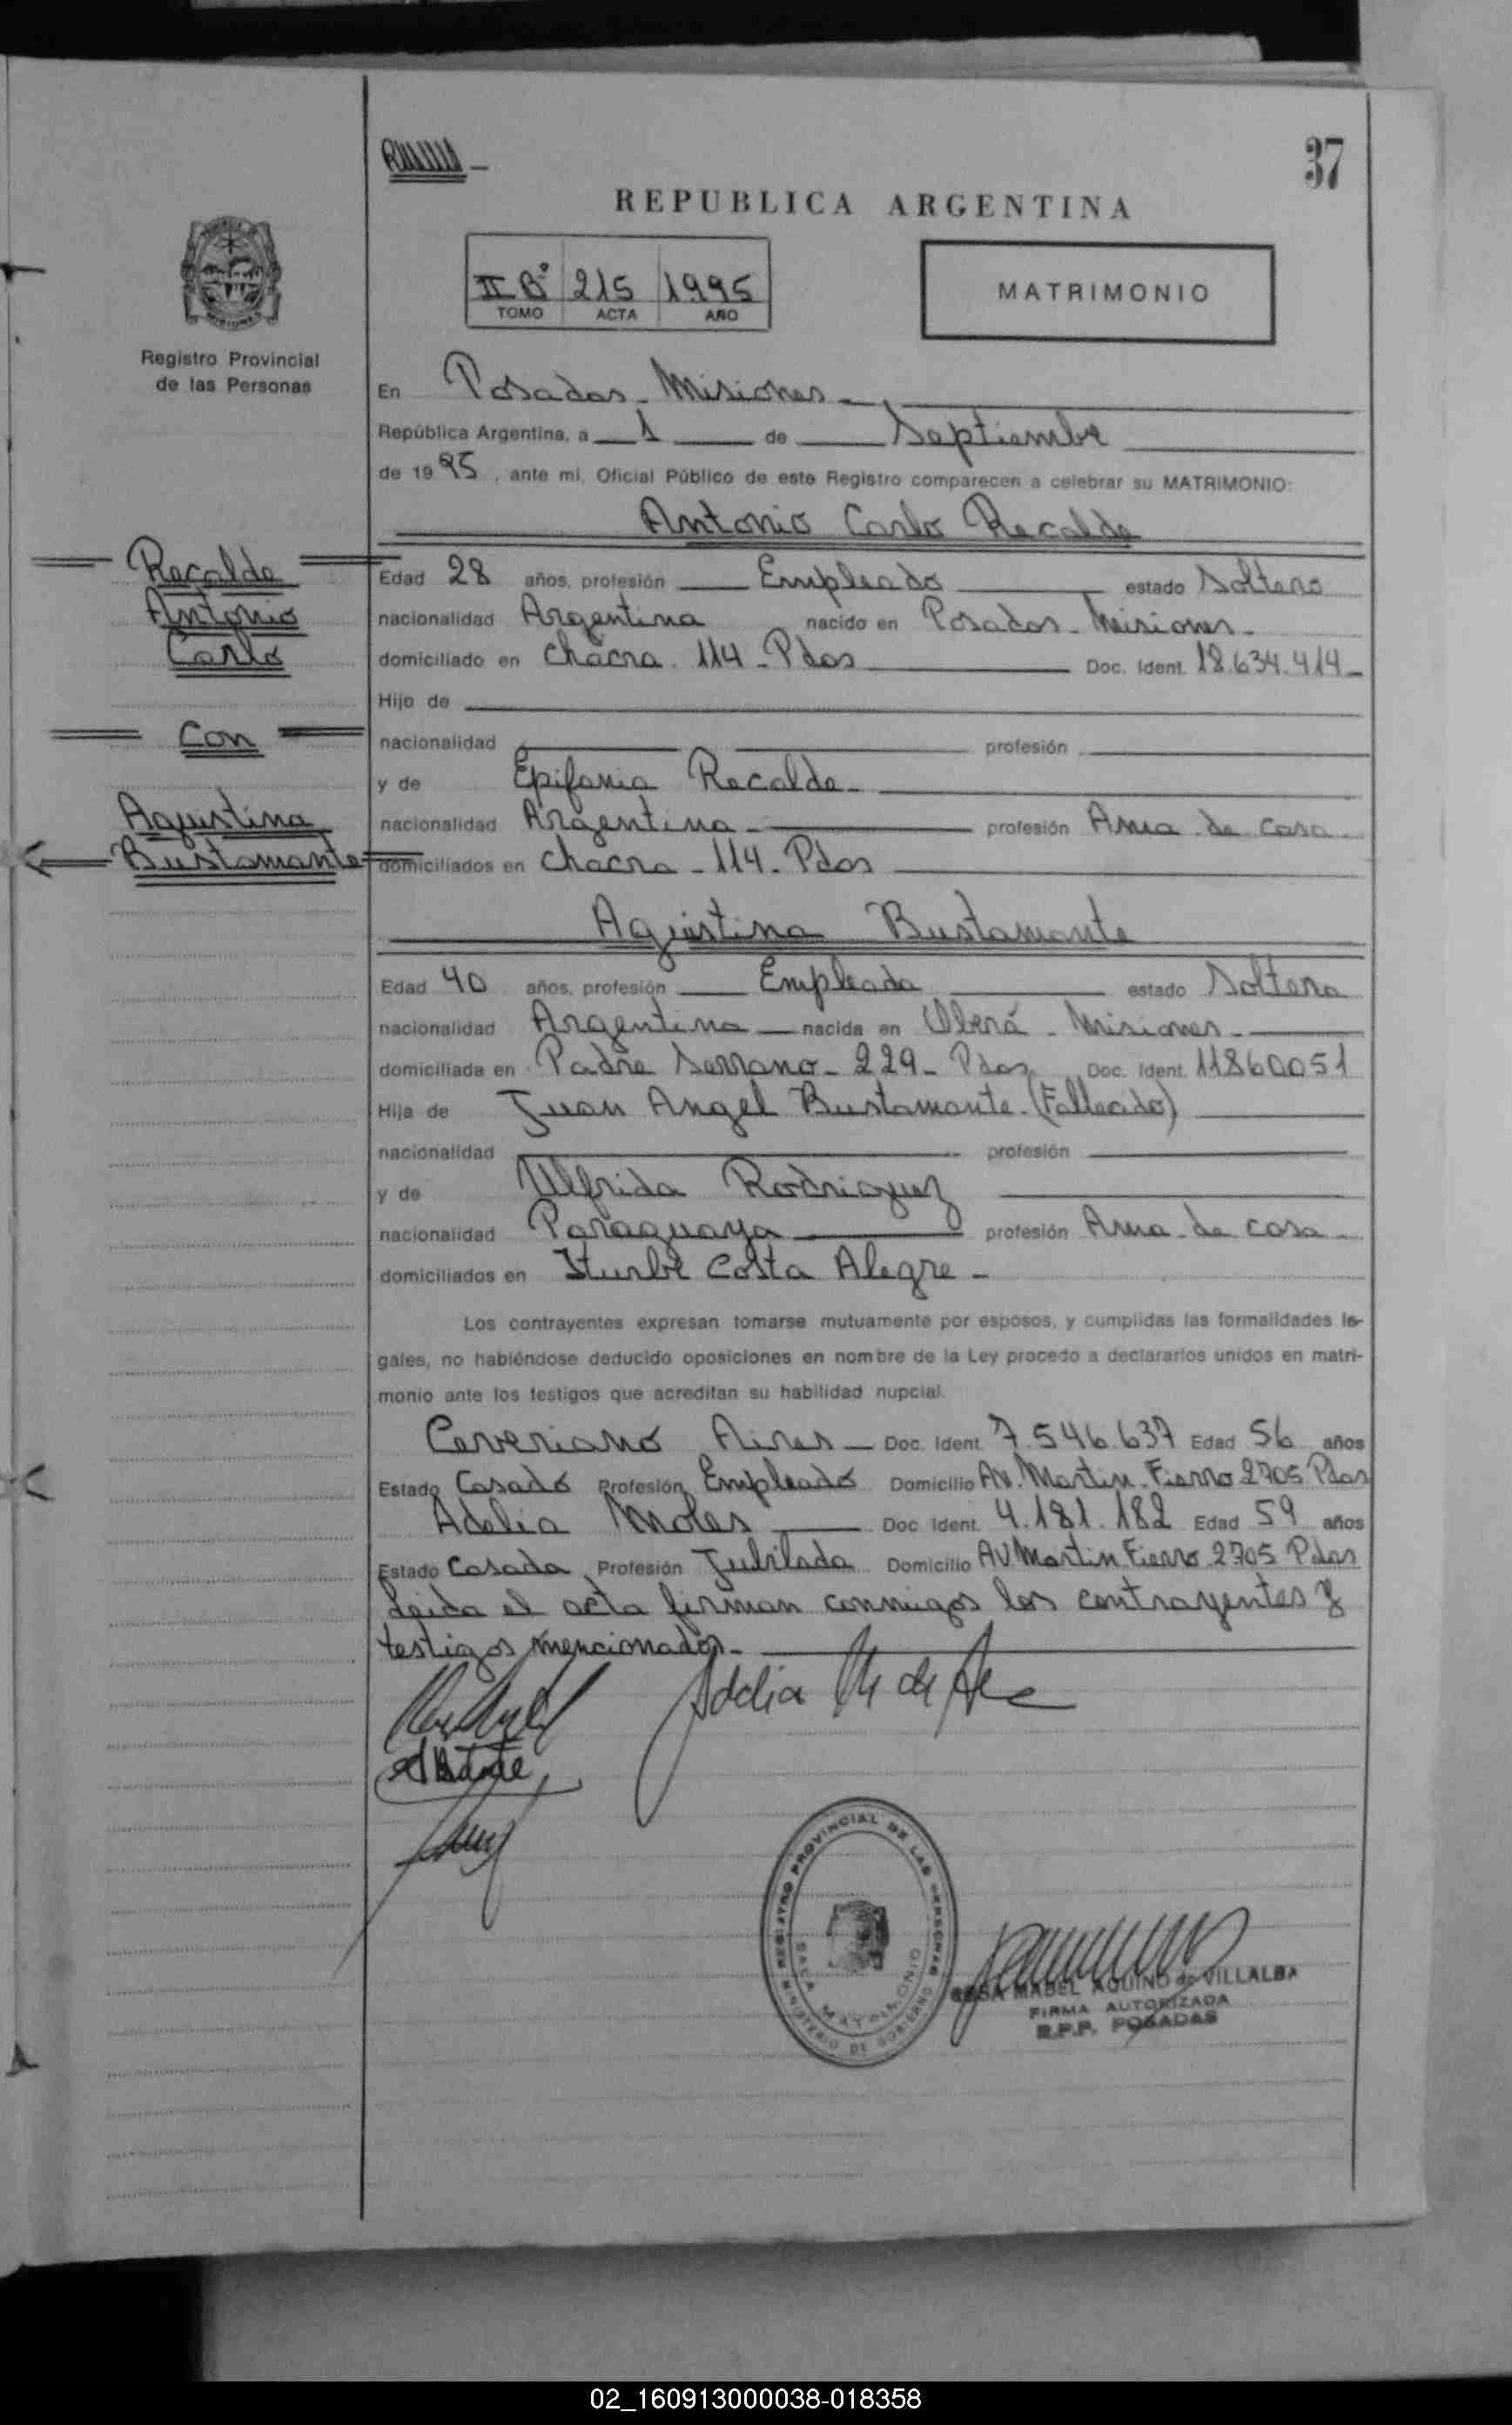 37
REPUBLICA ARGENTINA
II Bº 215 1995
TOMO ACTA AÑO
MATRIMONIO
Registro Provincial
de las Personas
En Posadas - Misiones -
República Argentina, a 1 de Septiembre
de 1995, ante mí, Oficial Público de este Registro comparecen a celebrar su MATRIMONIO:
Antonio Carlo Recalde
Recalde
Antonio
Carlo
Con
Agustina
Bustamante
Edad 28 años, profesión Empleado estado Soltero
nacionalidad Argentina nacido en Posadas - Misiones -
domiciliado en Chacra 114 - Pdas Doc. Ident. 18.634.414 -
Hijo de
nacionalidad profesión
y de Epifania Recalde -
nacionalidad Argentina - profesión Ama de casa -
domiciliados en Chacra - 114 - Pdas
Agustina Bustamante
Edad 40 años, profesión Empleada estado Soltera
nacionalidad Argentina nacida en Oberá - Misiones -
domiciliada en Padre Serrano - 229 - Pdas Doc. Ident. 11860051
Hija de Juan Angel Bustamante - (Fallecido)
nacionalidad profesión
y de Ulfrida Rodriguez
nacionalidad Paraguaya profesión Ama de casa -
domiciliados en Iturbe Costa Alegre -
Los contrayentes expresan tomarse mutuamente por esposos, y cumplidas las formalidades le-
gales, no habiéndose deducido oposiciones en nombre de la Ley procedo a declararlos unidos en matri-
monio ante los testigos que acreditan su habilidad nupcial.
Ceveriano Aires - Doc. Ident. 7.546.637 Edad 56 años
Estado Casado Profesión Empleado Domicilio Av. Martin Fierro 2705 Pdas
Adelia Moles Doc. Ident. 4.181.182 Edad 59 años
Estado Casada Profesión Jubilada Domicilio AV Martin Fierro 2705 Pdas
Leida el acta firman conmigos los contrayentes y
testigos mencionados -
Adelia M de
REGISTRO PROVINCIAL DE LAS PERSONAS
MINISTERIO DE GOBIERNO
SALA MATRIMONIO
ROSA MABEL AQUINO de VILLALBA
FIRMA AUTORIZADA
R.P.P. POSADAS
02_160913000038-018358